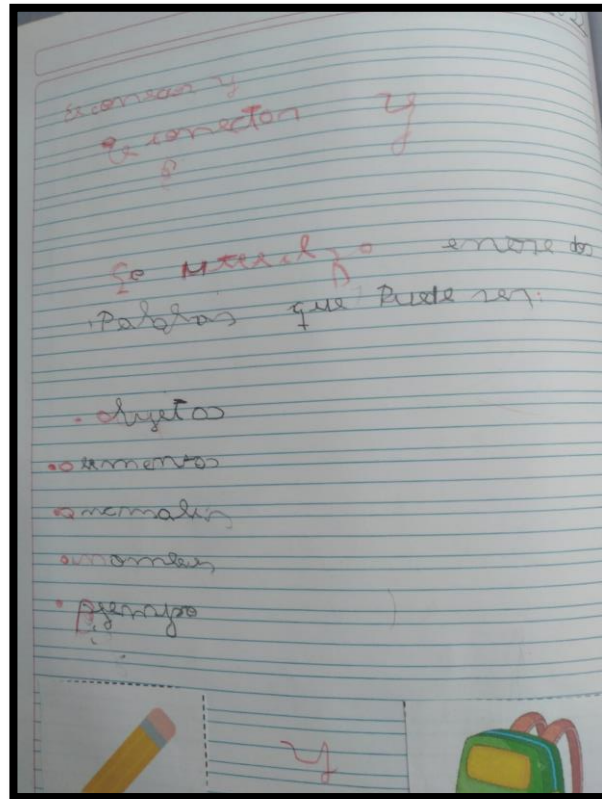 conector y
Se utiliza entre dos
Palabras que Puede ser:
objetos
alimentos
animales
nombres
Ejemplo
y